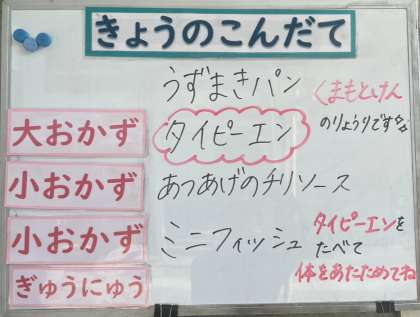 きょうのこんだて
うずまきパン
くまもとけん
のりょうりです
大おかず
タイピーエン
小おかず
あつあげのチリソース
小おかず
ミニフィッシュ
タイピーエンを
たべて
体をあたためてね
ぎゅうにゅう